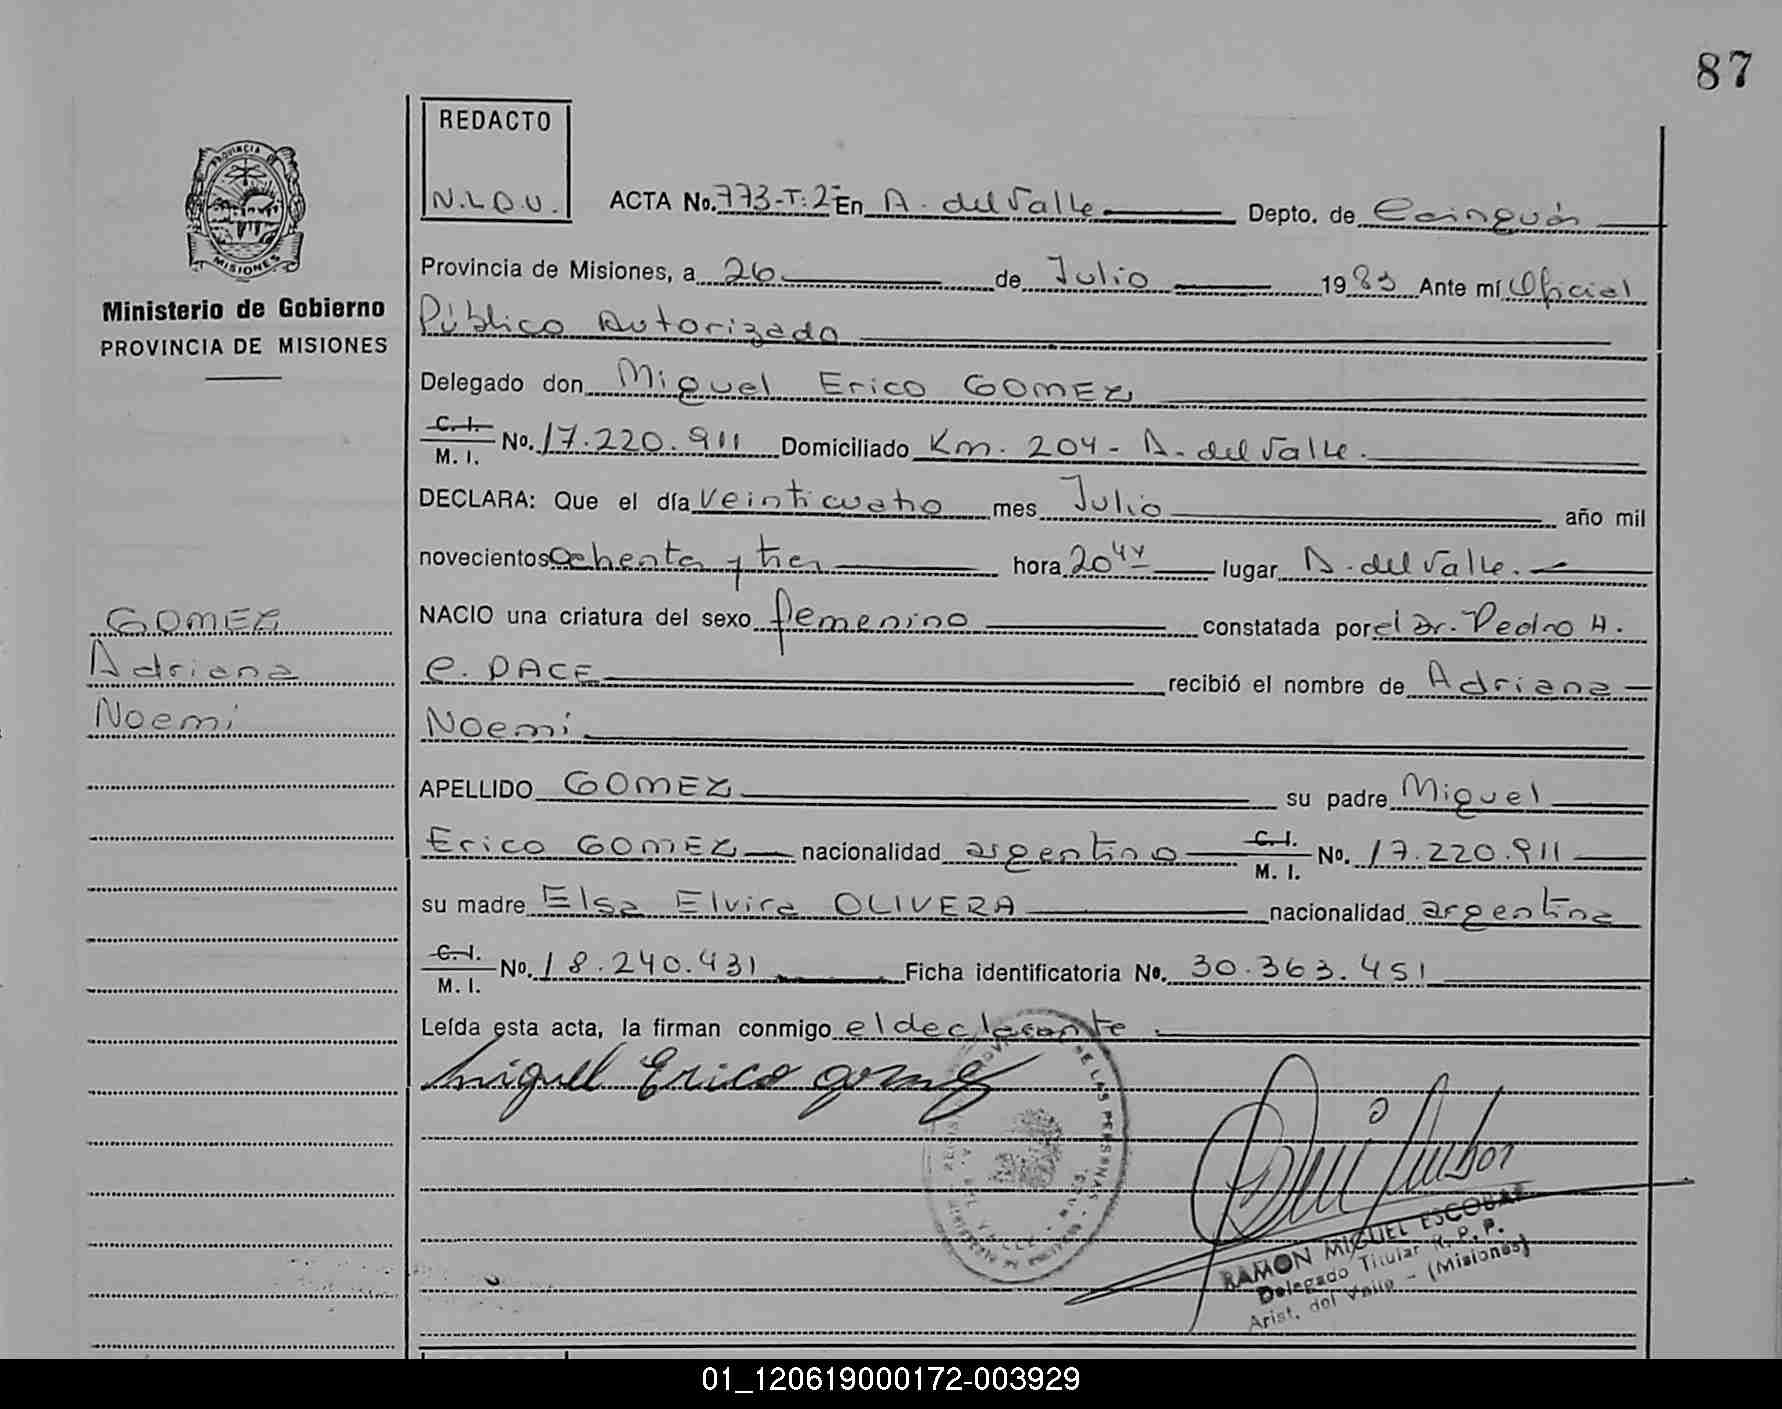 87
REDACTO
N.L.O.U.
PROVINCIA DE
MISIONES
Ministerio de Gobierno
PROVINCIA DE MISIONES
ACTA No. 773-T:2- En A. del Valle Depto. de Cainguás
Provincia de Misiones, a 26 de Julio 1983 Ante mí Oficial
Público Autorizado
Delegado don Miguel Erico GOMEZ
C. I. M. I. No. 17.220.911 Domiciliado Km. 204 - A. del Valle.
DECLARA: Que el día veinticuatro mes Julio año mil
novecientos ochenta y tres hora 20 lugar A. del Valle.
NACIO una criatura del sexo femenino constatada por el Dr. Pedro H.
C. PACE recibió el nombre de Adriana
Noemi
APELLIDO GOMEZ su padre Miguel
Erico GOMEZ nacionalidad argentino C. I. M. I. No. 17.220.911
su madre Elsa Elvira OLIVERA nacionalidad argentina
C. I. M. I. No. 18.240.431 Ficha identificatoria No. 30.363.451
Leída esta acta, la firman conmigo el declarante
GOMEZ
Adriana
Noemi
Miguel Erico gomez
DE LAS PERSONAS
RAMON MIGUEL ESCOBAR
Delegado Titular R. P. P.
Arist. del Valle - (Misiones)
01_120619000172-003929